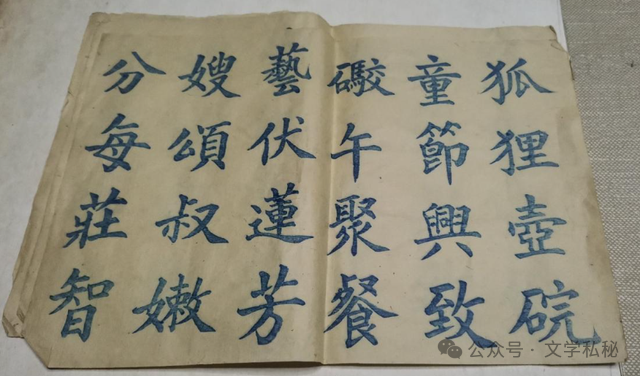 狐狸壺碗
童節興致
礮午聚餐
藝伏蓮芳
嫂頌叔嫩
分每莊智
公众号·文学私秘